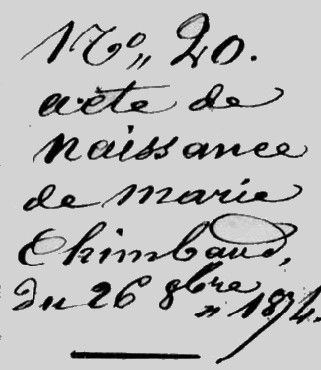 N° 20.
acte de
naissance
de marie
Chimbaud,
du 26 8bre 1874.